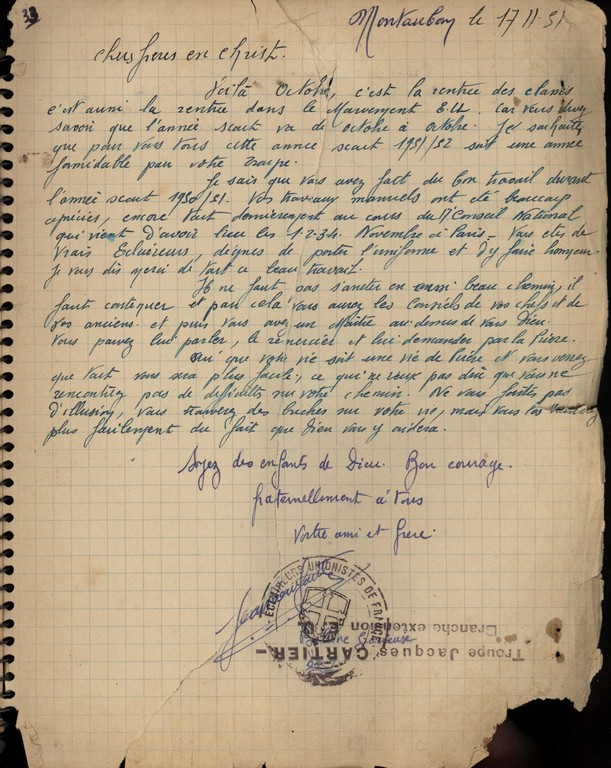 38
Montauban le 17 11.51
Chers freres en Christ.
Voilà Octobre, c'est la rentrée des classes
c'est aussi la rentrée dans le Mouvement E.U. Car vous devez
savoir que l'année scout va de octobre à octobre. Je souhaite
que pour vous tous cette annee scout 1951/52 soit une année
formidable pour votre troupe.
Je sais que vous avez fait du bon travail durant
l'année scout 1950/51. Vos travaux manuels ont été beaucoup
apréciés, encore tout dernièrement au cours du Conseil National
qui vient d'avoir lieu les 1.2.3.4. Novembre à Paris - Vous etes de
Vrais Eclaireurs, dignes de porter l'uniforme et d'y faire honneur.
Je vous dis merci de tout ce beau travail.
Il ne faut pas s'arreter en aussi beau chemin, il
faut continuer et pour cela vous aurez les Conseils de vos chefs et de
vos anciens. et puis vous avez un Maître au dessus de vous Dieu.
Vous pouvez lui parler, le remercier et lui demander par la Prière.
Oui que votre vie soit une vie de Prière et vous verrez
que tout vous sera plus facile, ce qui ne veux pas dire que vous ne
rencontriez pas de difficultés sur votre chemin. Ne vous faites pas
d'illusions, vous trouverez des buches sur votre vie, mais vous les
plus facilement du fait que Dieu vous y aidera.
Soyez des enfants de Dieu. Bon courage.
fraternellement à tous
Votre ami et frere.
ECLAIREURS UNIONISTES DE FRANCE
Troupe Jacques CARTIER -
Branche extension E.U.